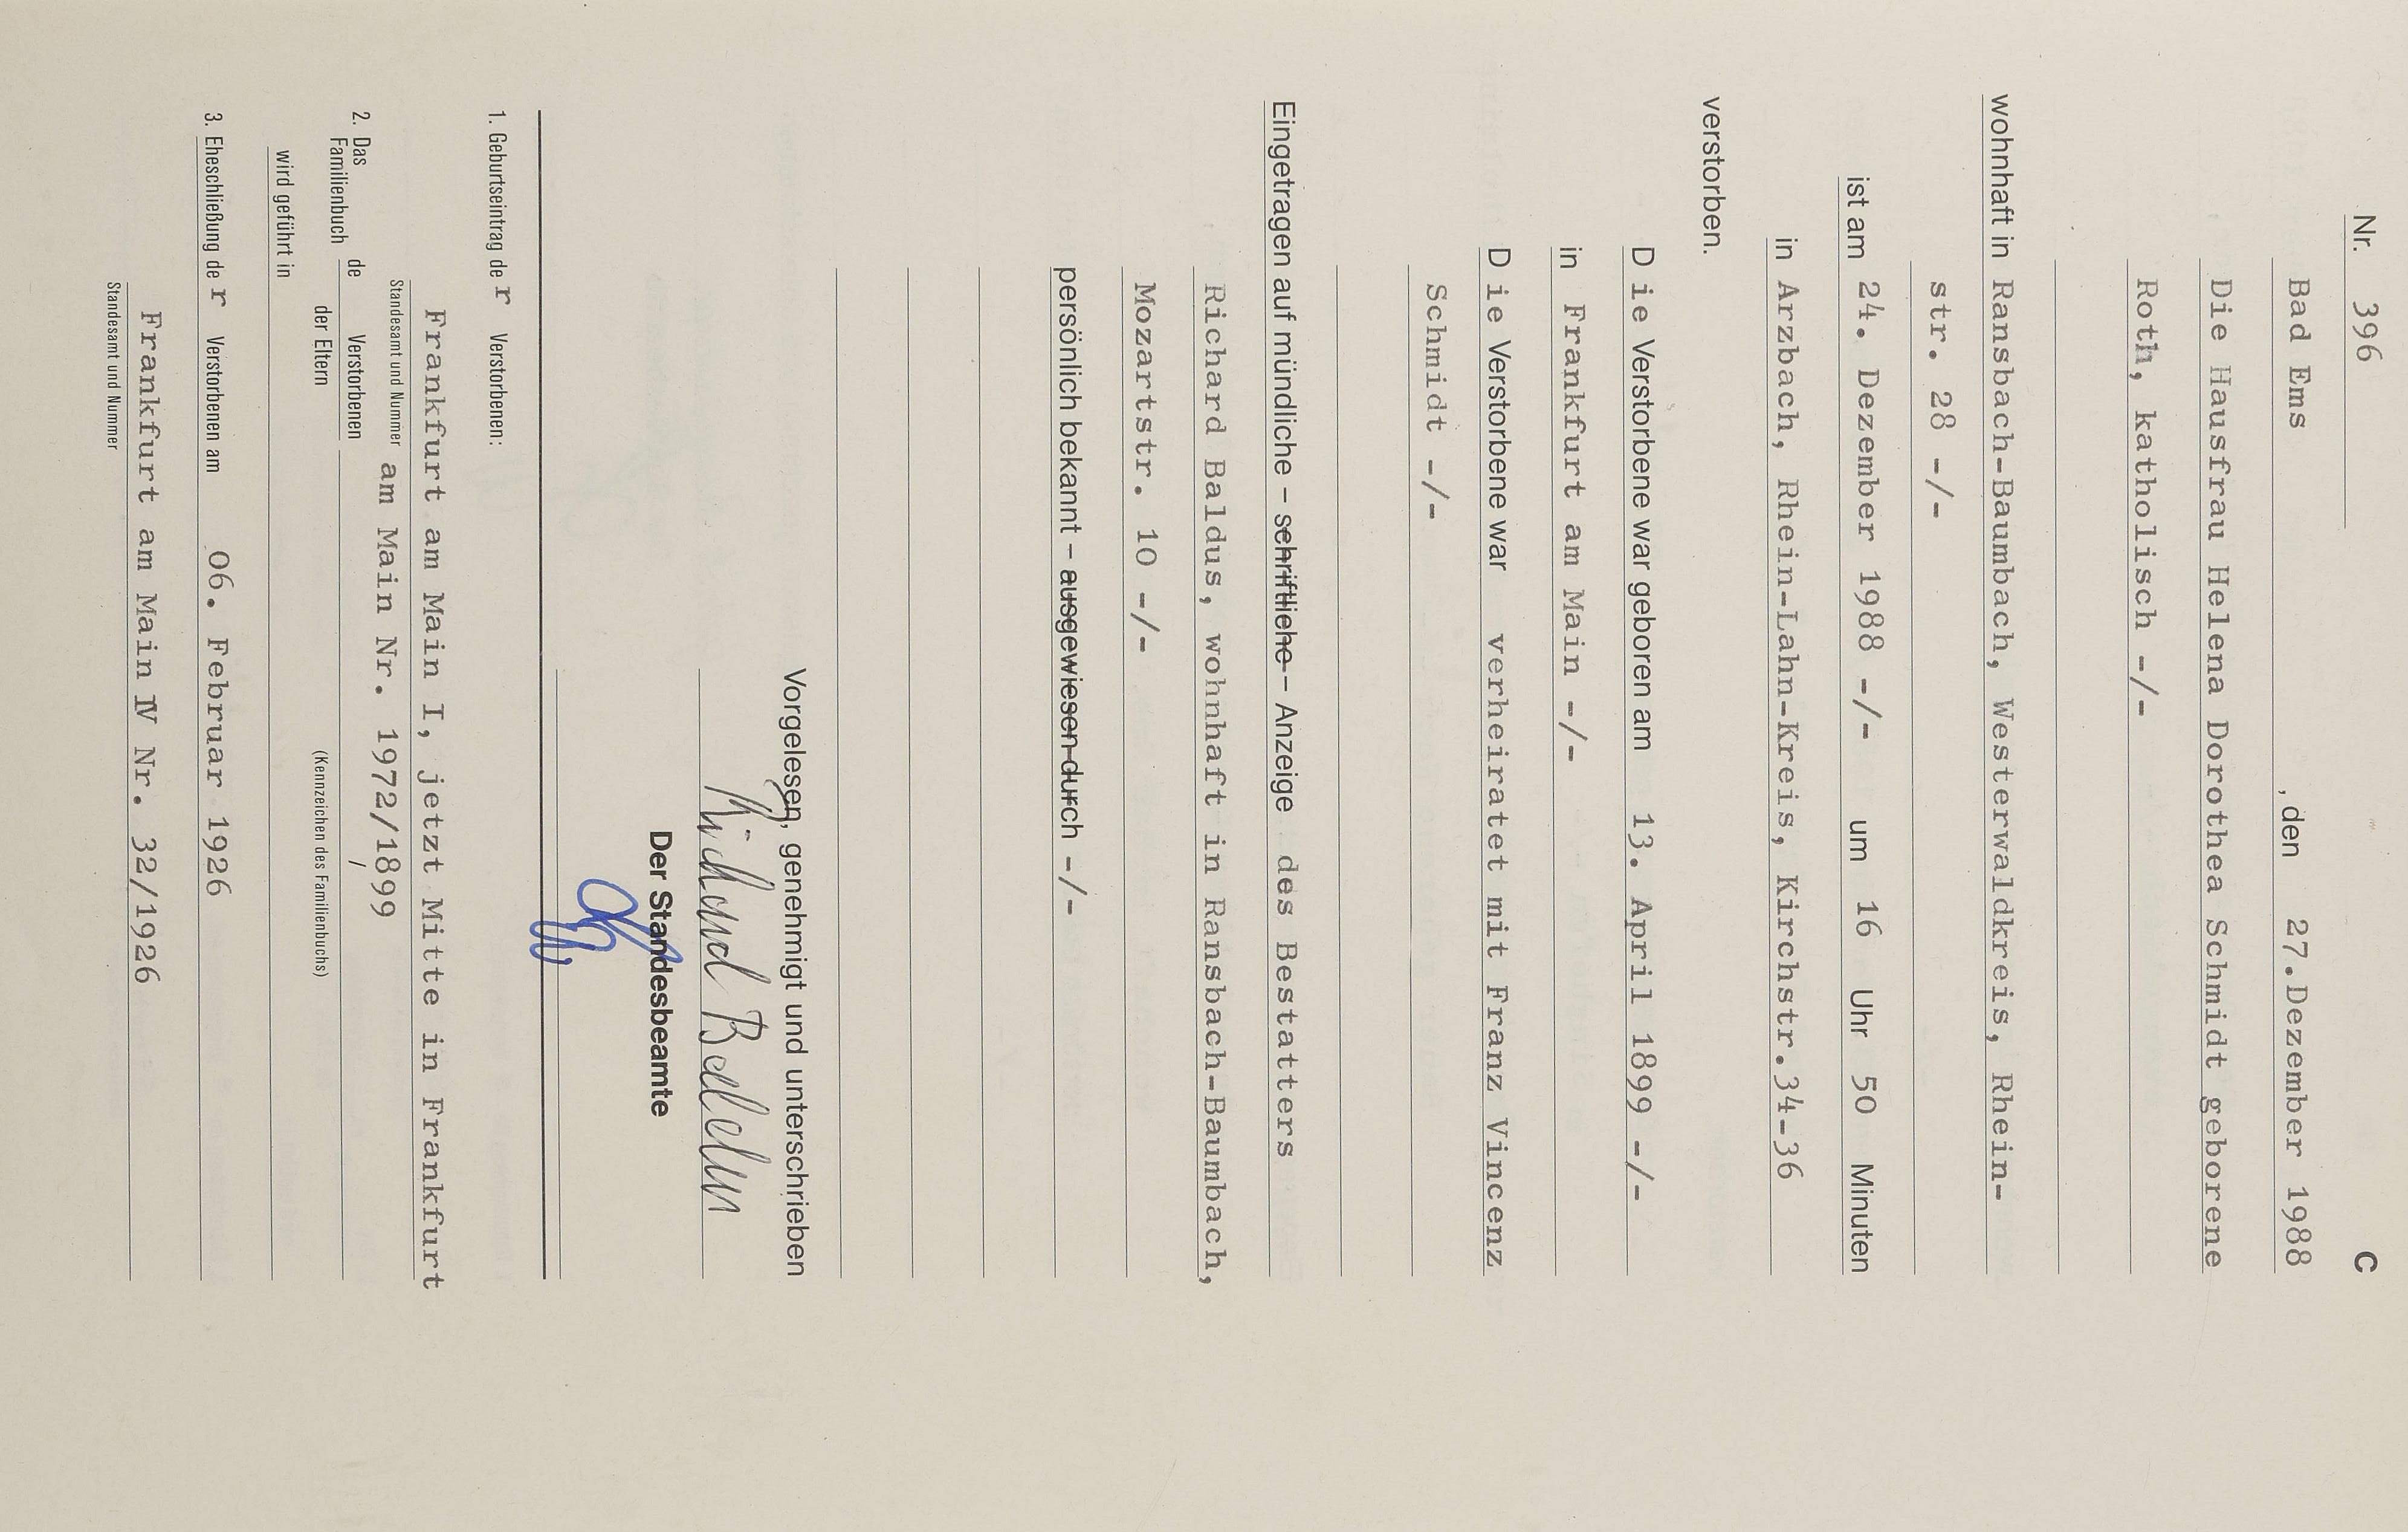 C
Nr. 396
Bad Ems , den 27.Dezember 1988
Die Hausfrau Helena Dorothea Schmidt geborene
Roth, katholisch -/-
wohnhaft in Ransbach-Baumbach, Westerwaldkreis, Rhein-
str. 28 -/-
ist am 24. Dezember 1988 -/- um 16 Uhr 50 Minuten
in Arzbach, Rhein-Lahn-Kreis, Kirchstr.34-36
verstorben.
D ie Verstorbene war geboren am 13. April 1899 -/-
in Frankfurt am Main -/-
D ie Verstorbene war verheiratet mit Franz Vincenz
Schmidt -/-
Eingetragen auf mündliche – schriftliche – Anzeige des Bestatters
Richard Baldus, wohnhaft in Ransbach-Baumbach,
Mozartstr. 10 -/-
persönlich bekannt – ausgewiesen durch -/-
Vorgelesen, genehmigt und unterschrieben
Richard Baldus
Der Standesbeamte
1. Geburtseintrag de r Verstorbenen:
Frankfurt am Main I, jetzt Mitte in Frankfurt
Standesamt und Nummer am Main Nr. 1972/1899
2. Das Familienbuch de Verstorbenen /
der Eltern (Kennzeichen des Familienbuchs)
wird geführt in
3. Eheschließung de r Verstorbenen am 06. Februar 1926
Frankfurt am Main IV Nr. 32/1926
Standesamt und Nummer